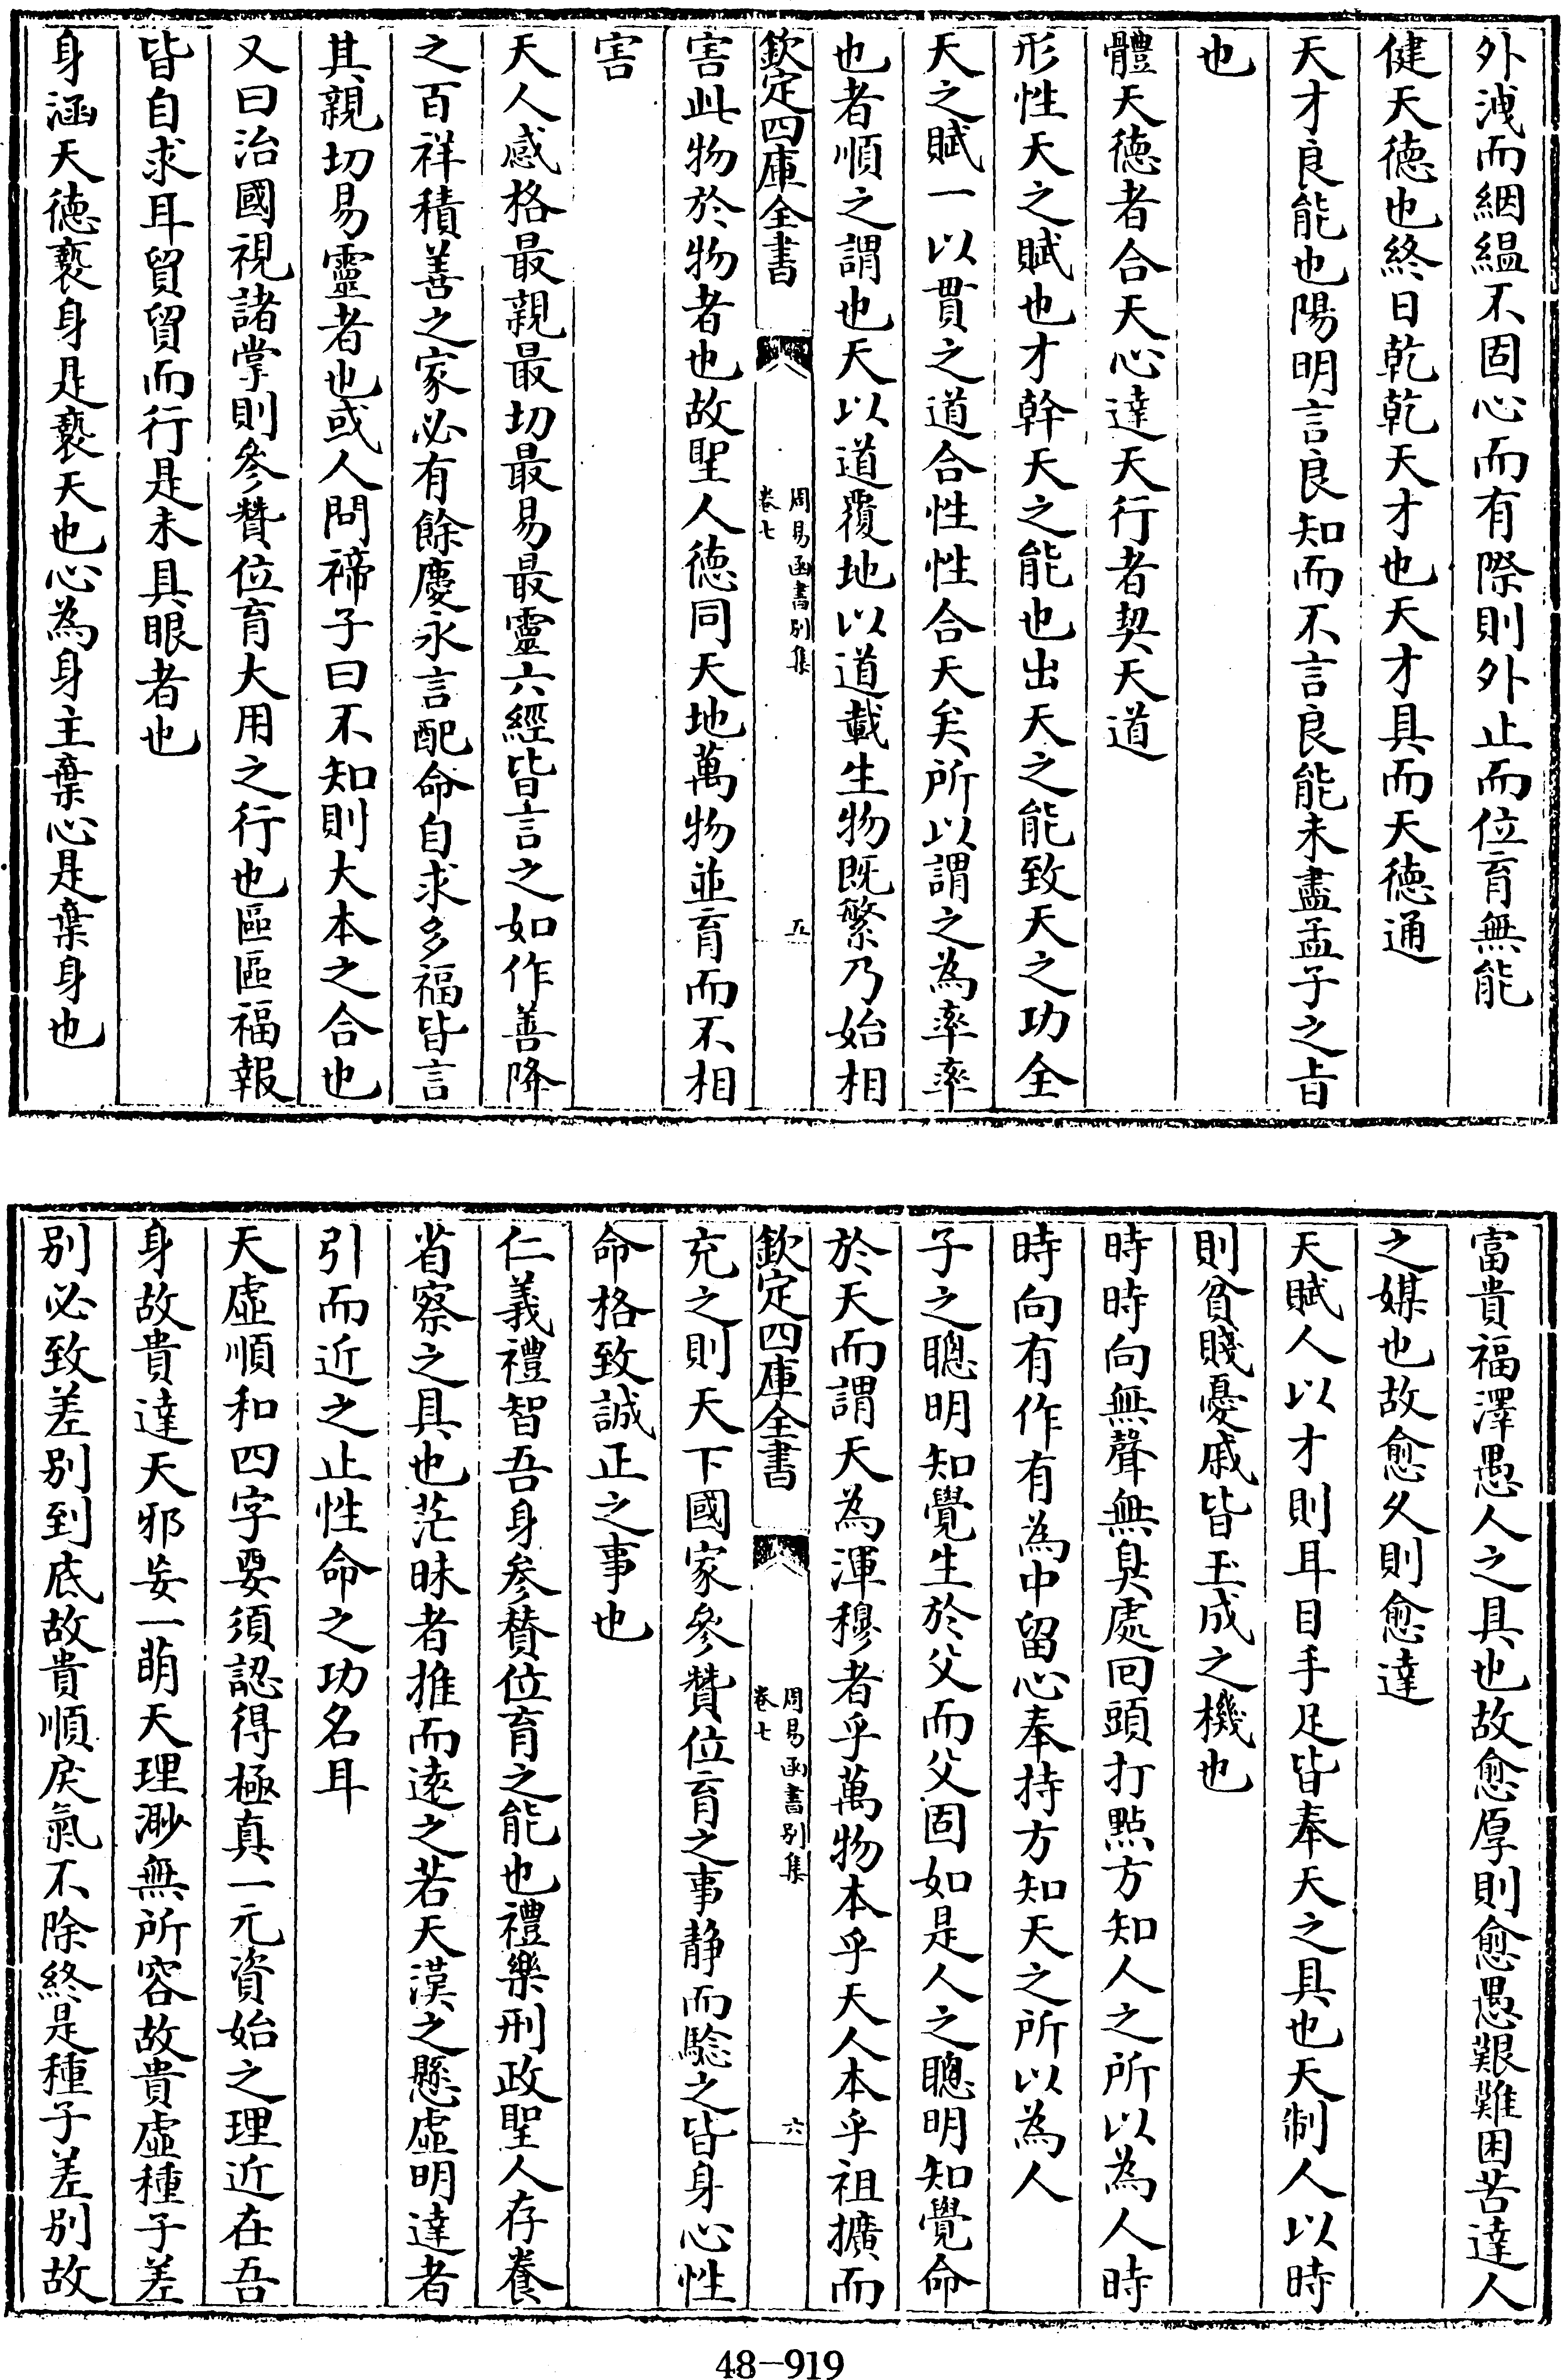 外洩而絪縕不固心而有際則外止而位育無能
健天德也終日乾乾天才也天才具而天德通
天才良能也陽明言良知而不言良能未盡孟子之旨
也
體天德者合天心達天行者契天道
形性天之賦也才幹天之能也出天之能致天之功全
天之賦一以貫之道合性性合天矣所以謂之為率率
也者順之謂也天以道覆地以道載生物既繁乃始相
欽定四庫全書
周易函書別集
卷七
五
害此物於物者也故聖人德同天地萬物並育而不相
害
天人感格最親最切最易最靈六經皆言之如作善降
之百祥積善之家必有餘慶永言配命自求多福皆言
其親切易靈者也或人問禘子曰不知則大本之合也
又曰治國視諸掌則參贊位育大用之行也區區福報
皆自求耳貿貿而行是未具眼者也
身涵天德褻身是褻天也心為身主棄心是棄身也
富貴福澤愚人之具也故愈厚則愈愚艱難困苦達人
之媒也故愈久則愈達
天賦人以才則耳目手足皆奉天之具也天制人以時
則貧賤憂戚皆玉成之機也
時時向無聲無臭處回頭打點方知人之所以為人時
時向有作有為中留心奉持方知天之所以為人
子之聰明知覺生於父而父固如是人之聰明知覺命
於天而謂天為渾穆者乎萬物本乎天人本乎祖擴而
欽定四庫全書
周易函書別集
卷七
六
充之則天下國家參贊位育之事静而驗之皆身心性
命格致誠正之事也
仁義禮智吾身參贊位育之能也禮樂刑政聖人存養
省察之具也茫昧者推而遠之若天漢之懸虛明達者
引而近之止性命之功名耳
天虛順和四字要須認得極真一元資始之理近在吾
身故貴達天邪妄一萌天理渺無所容故貴虛種子差
別必致差別到底故貴順戾氣不除終是種子差別故
48-919